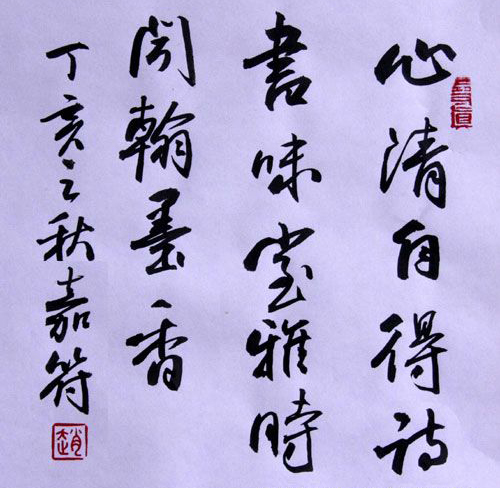 心清自得诗
書味室雅時
闻翰墨香
丁亥之秋嘉符
趙